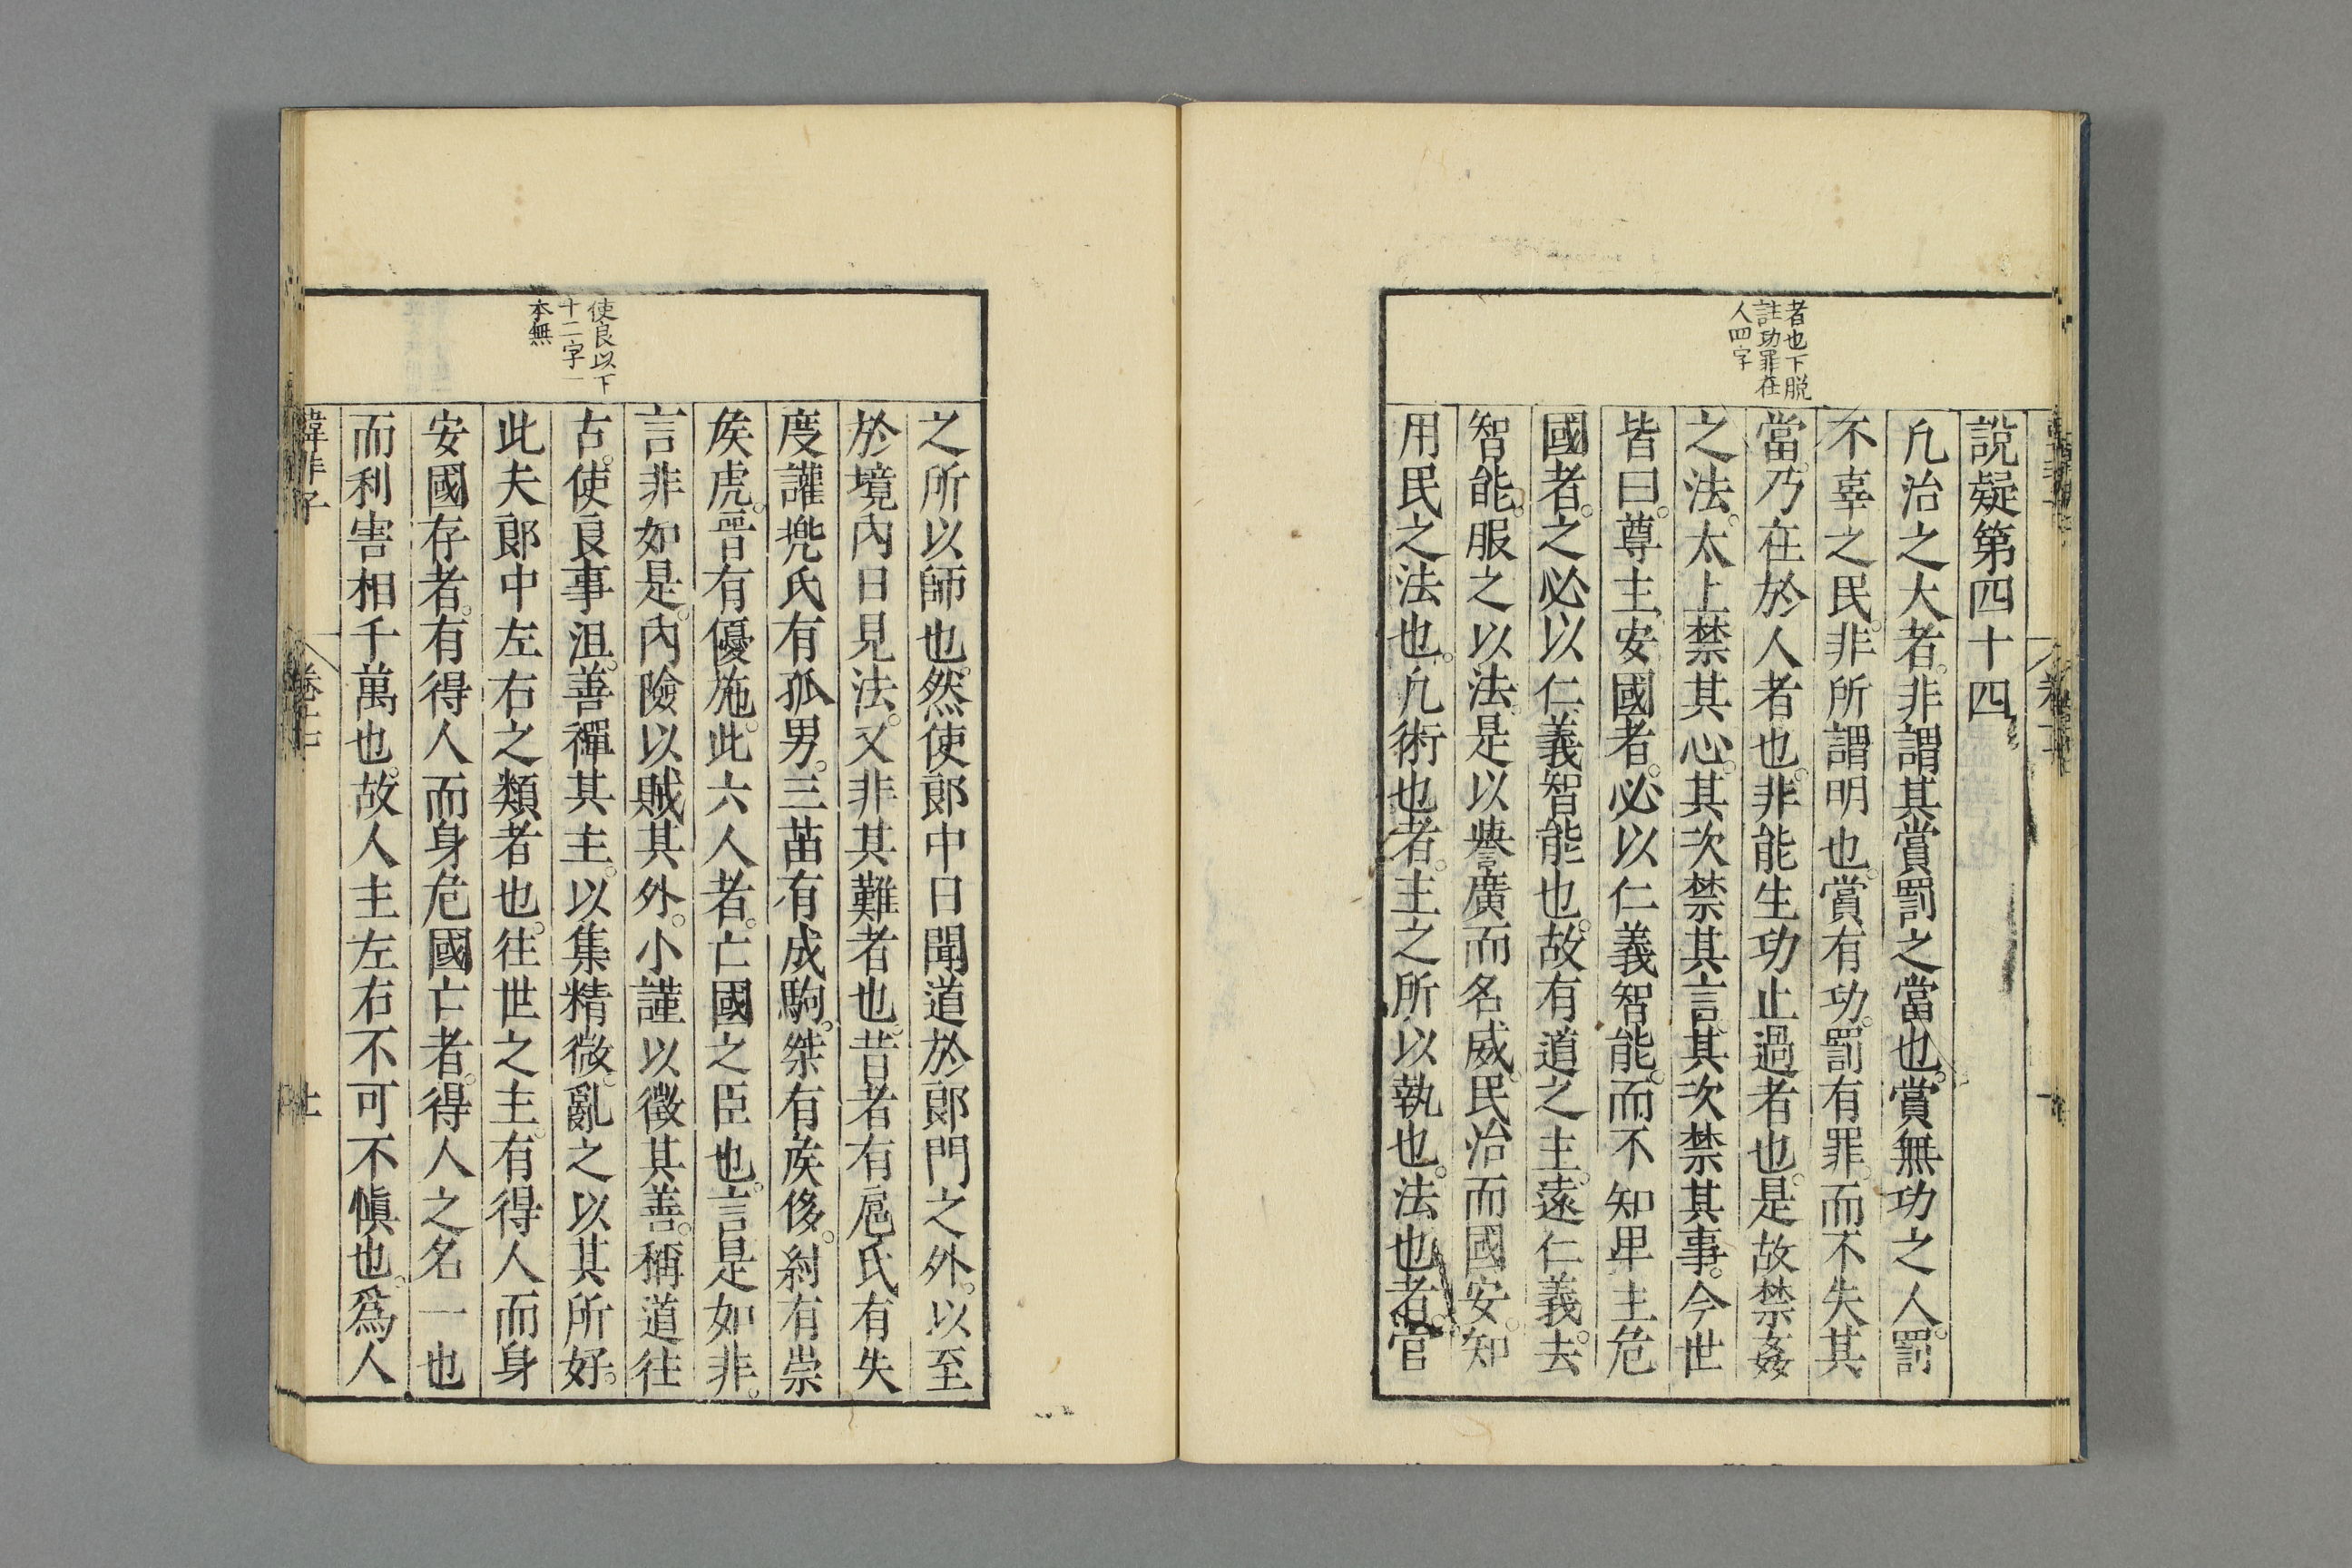 者也下脱
註功罪在
人四字
說疑第四十四
凢治之大者。非謂其賞罰之當也。賞無功之人。罰
不辜之民。非所謂明也。賞有功。罰有罪。而不失其
當。乃在於人者也。非能生功止過者也。是故禁姦
之法。太上禁其心。其次禁其言。其次禁其事。今世
皆曰。尊主安國者。必以仁義智能。而不知卑主危
國者。之必以仁義智能也。故有道之主。遠仁義。去
智能。服之以法。是以譽廣而名威。民治而國安。知
用民之法也。凢術也者。主之所以執也。法也者。官
使良以下
十二字一
本無
之所以師也。然使郎中日聞道於郎門之外。以至
於境內日見法。又非其難者也。昔者有扈氏有失
度讙兠氏有孤男。三苗有成駒。桀有矦侈。紂有崇
矦虎。晉有優施。此六人者。亡國之臣也。言是如非。
言非如是。內險以賊其外。小謹以徵其善。稱道往
古。使良事沮。善禪其主。以集精微。亂之以其所好。
此夫郎中左右之類者也。往世之主。有得人而身
安國存者。有得人而身危國亡者。得人之名一也
而利害相千萬也。故人主左右不可不愼也。爲人
韓非子